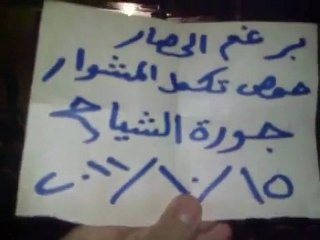 برغم الحصار
حمص تكمل المشوار
جورة الشياح
١٥/١٠/٢٠١١